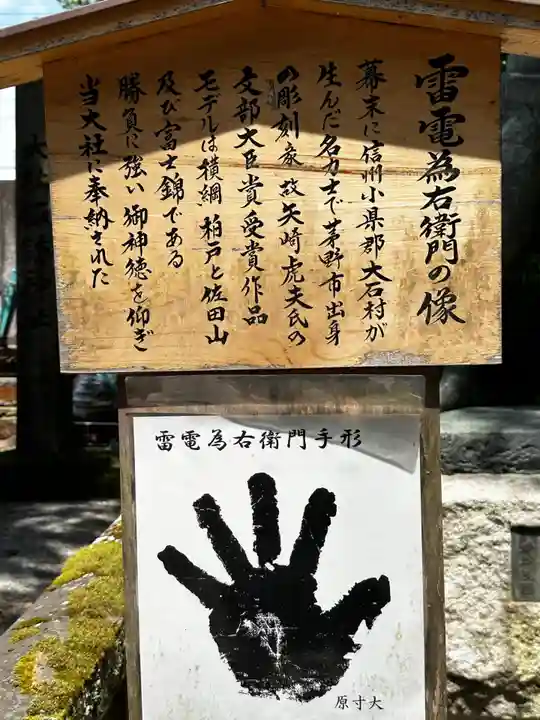 雷電為右衛門の像
幕末に信州小県郡大石村が
生んだ名力士で茅野市出身
の彫刻家故矢崎虎夫氏の
文部大臣賞受賞作品
モデルは横綱柏戸と佐田山
及び富士錦である
勝負に強い御神徳を仰ぎ
当大社に奉納された
雷電為右衛門手形
原寸大